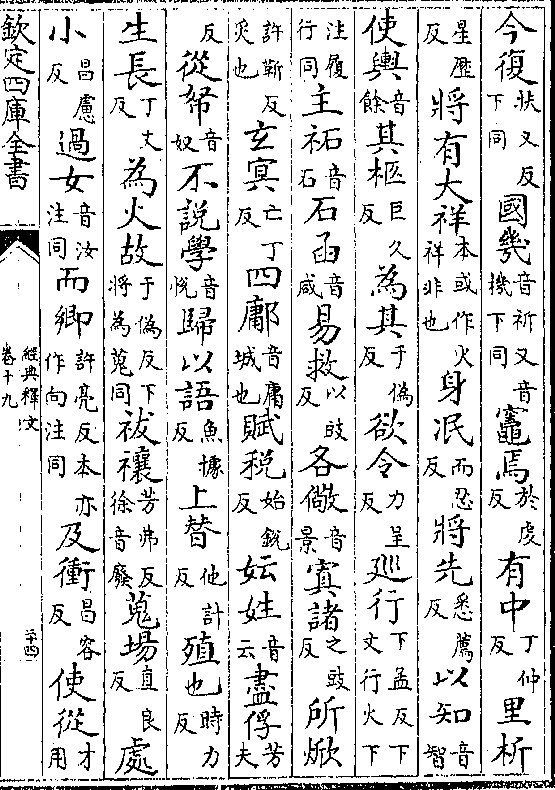 今復扶又反下同國幾音祈又音機下同竈焉於虔反有中丁仲反里析
星歷反將有大祥本或作火祥非也身泯而忍反將先悉薦反以知音智
使輿音餘其柩巨久反為其于偽反欲令力呈反廵行下孟反下文行火下
注履行同主祏音石石函音咸易救以豉反各儆音景寘諸之豉反所焮
許靳反炙也玄冥亡丁反四鄘音庸城也賦稅始銳反妘姓音云盡俘芳夫
反從帑音奴不説學音悅歸以語魚據反上替他計反殖也時力反
生長丁丈反為火故于偽反下將為蒐同祓禳芳弗反徐音廢蒐場直良反處
小昌慮反過女音汝注同而鄉許亮反本亦作向注同及衝昌容反使從才用
欽定四庫全書
經典釋文
卷十九
二十四